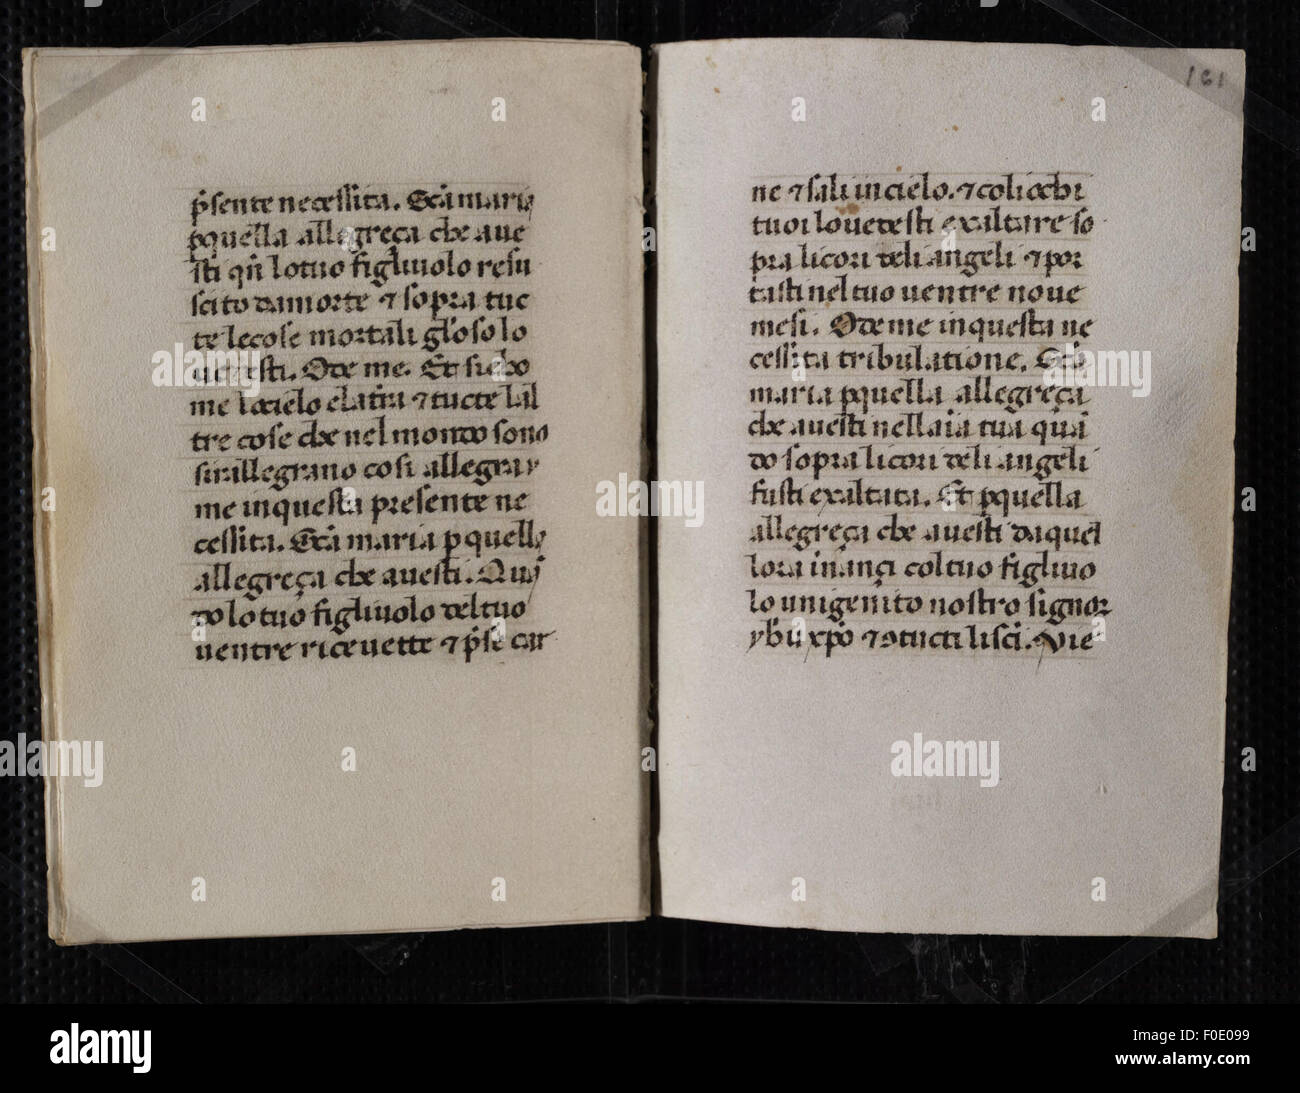 p̄sente necessita. Sc̄a maria
pquella allegreça che aue
sti qn̄ lotuo figliuolo resu
scito damorte ⁊ sopra tuc
te lecose mortali gl'oso lo
uedesti. Ode me. Et si cho
me locielo elatr̄a ⁊ tucte lal
tre cose che nel mondo sono
sirallegrano cosi allegra
me inquesta presente ne
cessita. Sc̄a maria pquella
allegreça che auesti. Quā
do lo tuo figliuolo deltuo
uentre riceuette ⁊ p̄se car
161
ne ⁊ sali incielo. ⁊ coliochi
tuoi louedesti exaltare so
pra licori deli angeli ⁊ por
tasti nel tuo uentre noue
mesi. Ode me inquesta ne
cessita tribulatione. Sc̄a
maria pquella allegreça
che auesti nellaīa tua quā
do sopra licori deli angeli
fusti exaltata. Et pquella
allegreça che auesti daquel
lora inançi col tuo figliuo
lo unigenito nostro signor
yh̄u xp̄o ⁊ ꝯtucti lisc̄i. Vie
alamy
alamy
alamy
alamy
alamy
alamy
a
alamy
Image ID: F0E099
www.alamy.com